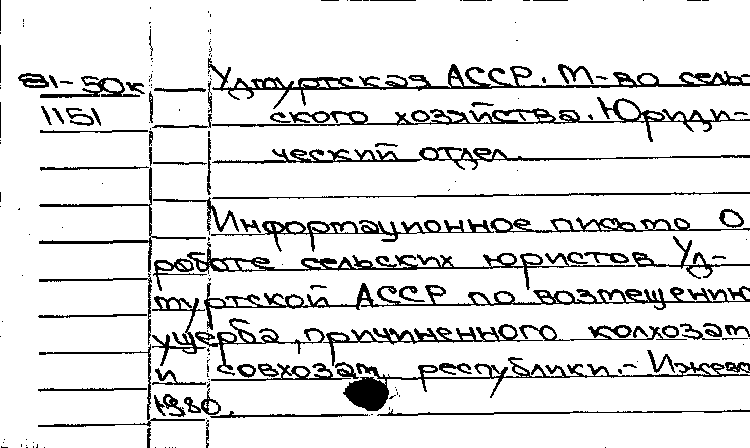 81-50к
1151
Удмуртская АССР. М-во сель
ского хозяйства. Юриди-
ческий отдел.
Информационное письмо о
работе сельских юристов Уд-
муртской АССР по возмещению
ущерба, причиненного колхозам
и совхозам республики.- Ижевс
1980.